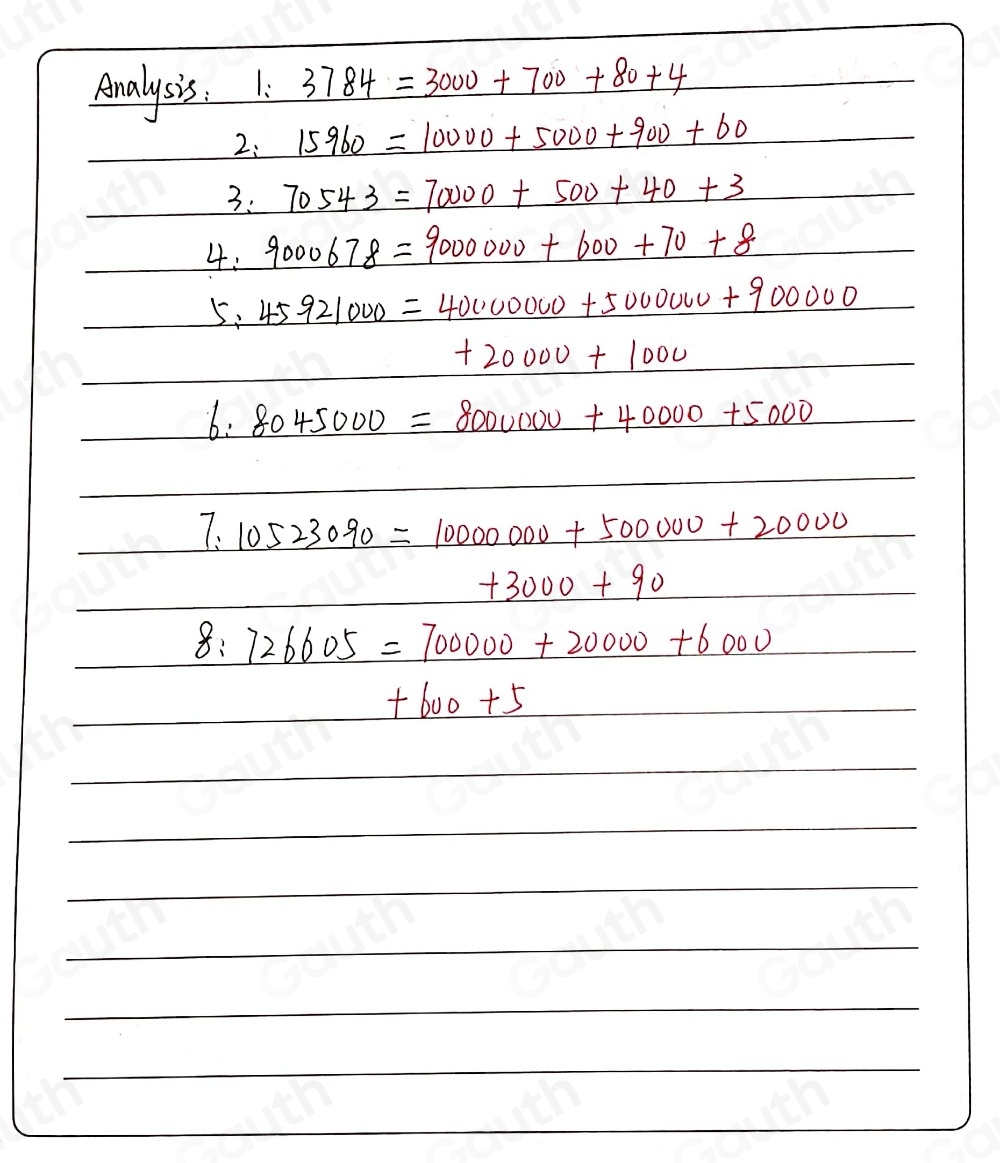 Analysis: 1: 3784 = 3000 + 700 + 80 + 4
2: 15960 = 10000 + 5000 + 900 + 60
3: 70543 = 70000 + 500 + 40 + 3
4: 9000678 = 9000000 + 600 + 70 + 8
5: 45921000 = 40000000 + 5000000 + 900000
+ 20000 + 1000
6: 8045000 = 8000000 + 40000 + 5000
7: 10523090 = 10000000 + 500000 + 20000
+ 3000 + 90
8: 726605 = 700000 + 20000 + 6000
+ 600 + 5